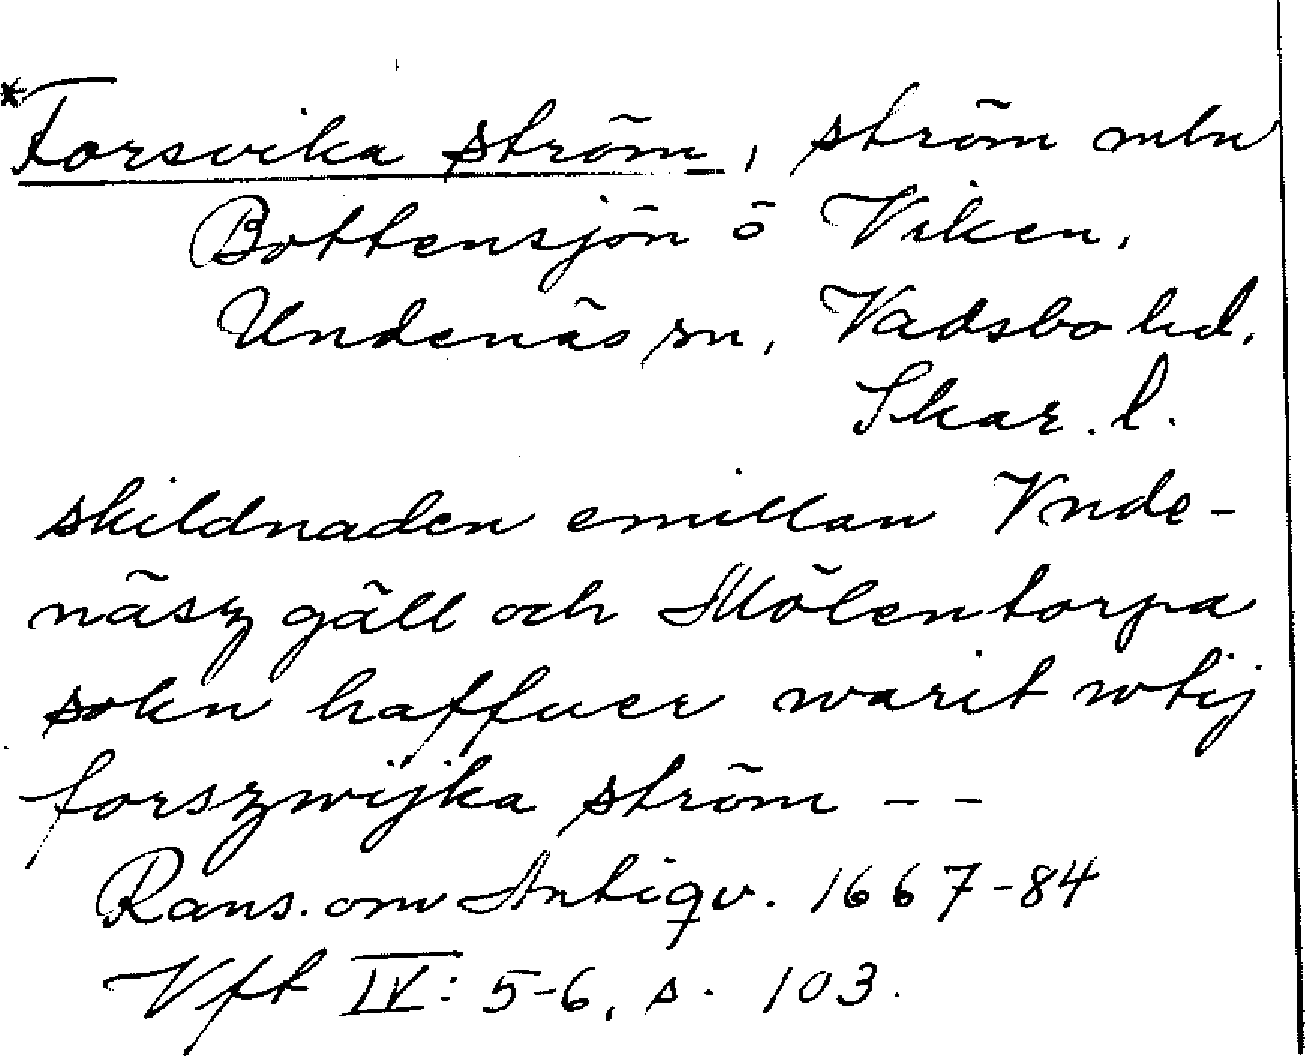 *Forsvika ström, ström mln
Bottensjön o Viken,
Undenäs sn, Vadsbo hd.
Skar. l.
skildnaden emillan Vnde-
näsz gäll och Mölentorpa
sokn haffuer warit wtij
forszwijka ström - -
Rans. om Antiqv. 1667-84
Vft IV: 5-6, s. 103.